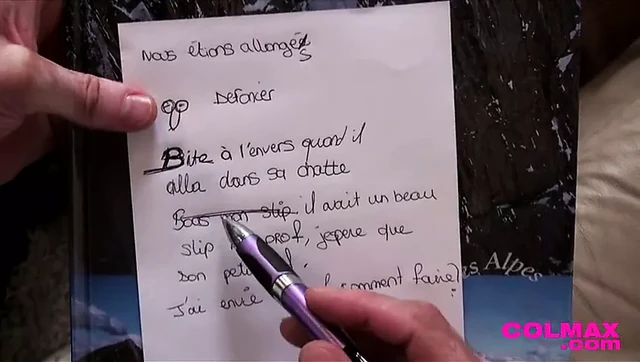 Nous étions allongés
Defoncer
Bite à l'envers quand il
alla dans sa chatte
slip il avait un beau
slip prof, j'epere que
son
J'ai envie comment faire?
Alpes
COLMAX
.com